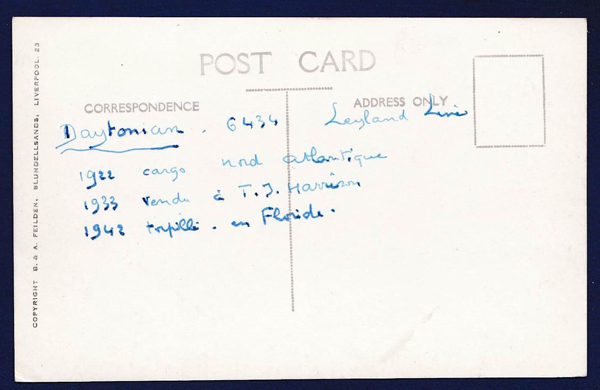 POST CARD
CORRESPONDENCE
ADDRESS ONLY
Daytonian. 6434 Leyland Line
1922 cargo nord atlantique
1933 vendu à T. J. Harrison
1942 torpillé. en Floride.
COPYRIGHT B. & A. FEILDEN, BLUNDELLSANDS, LIVERPOOL, 23